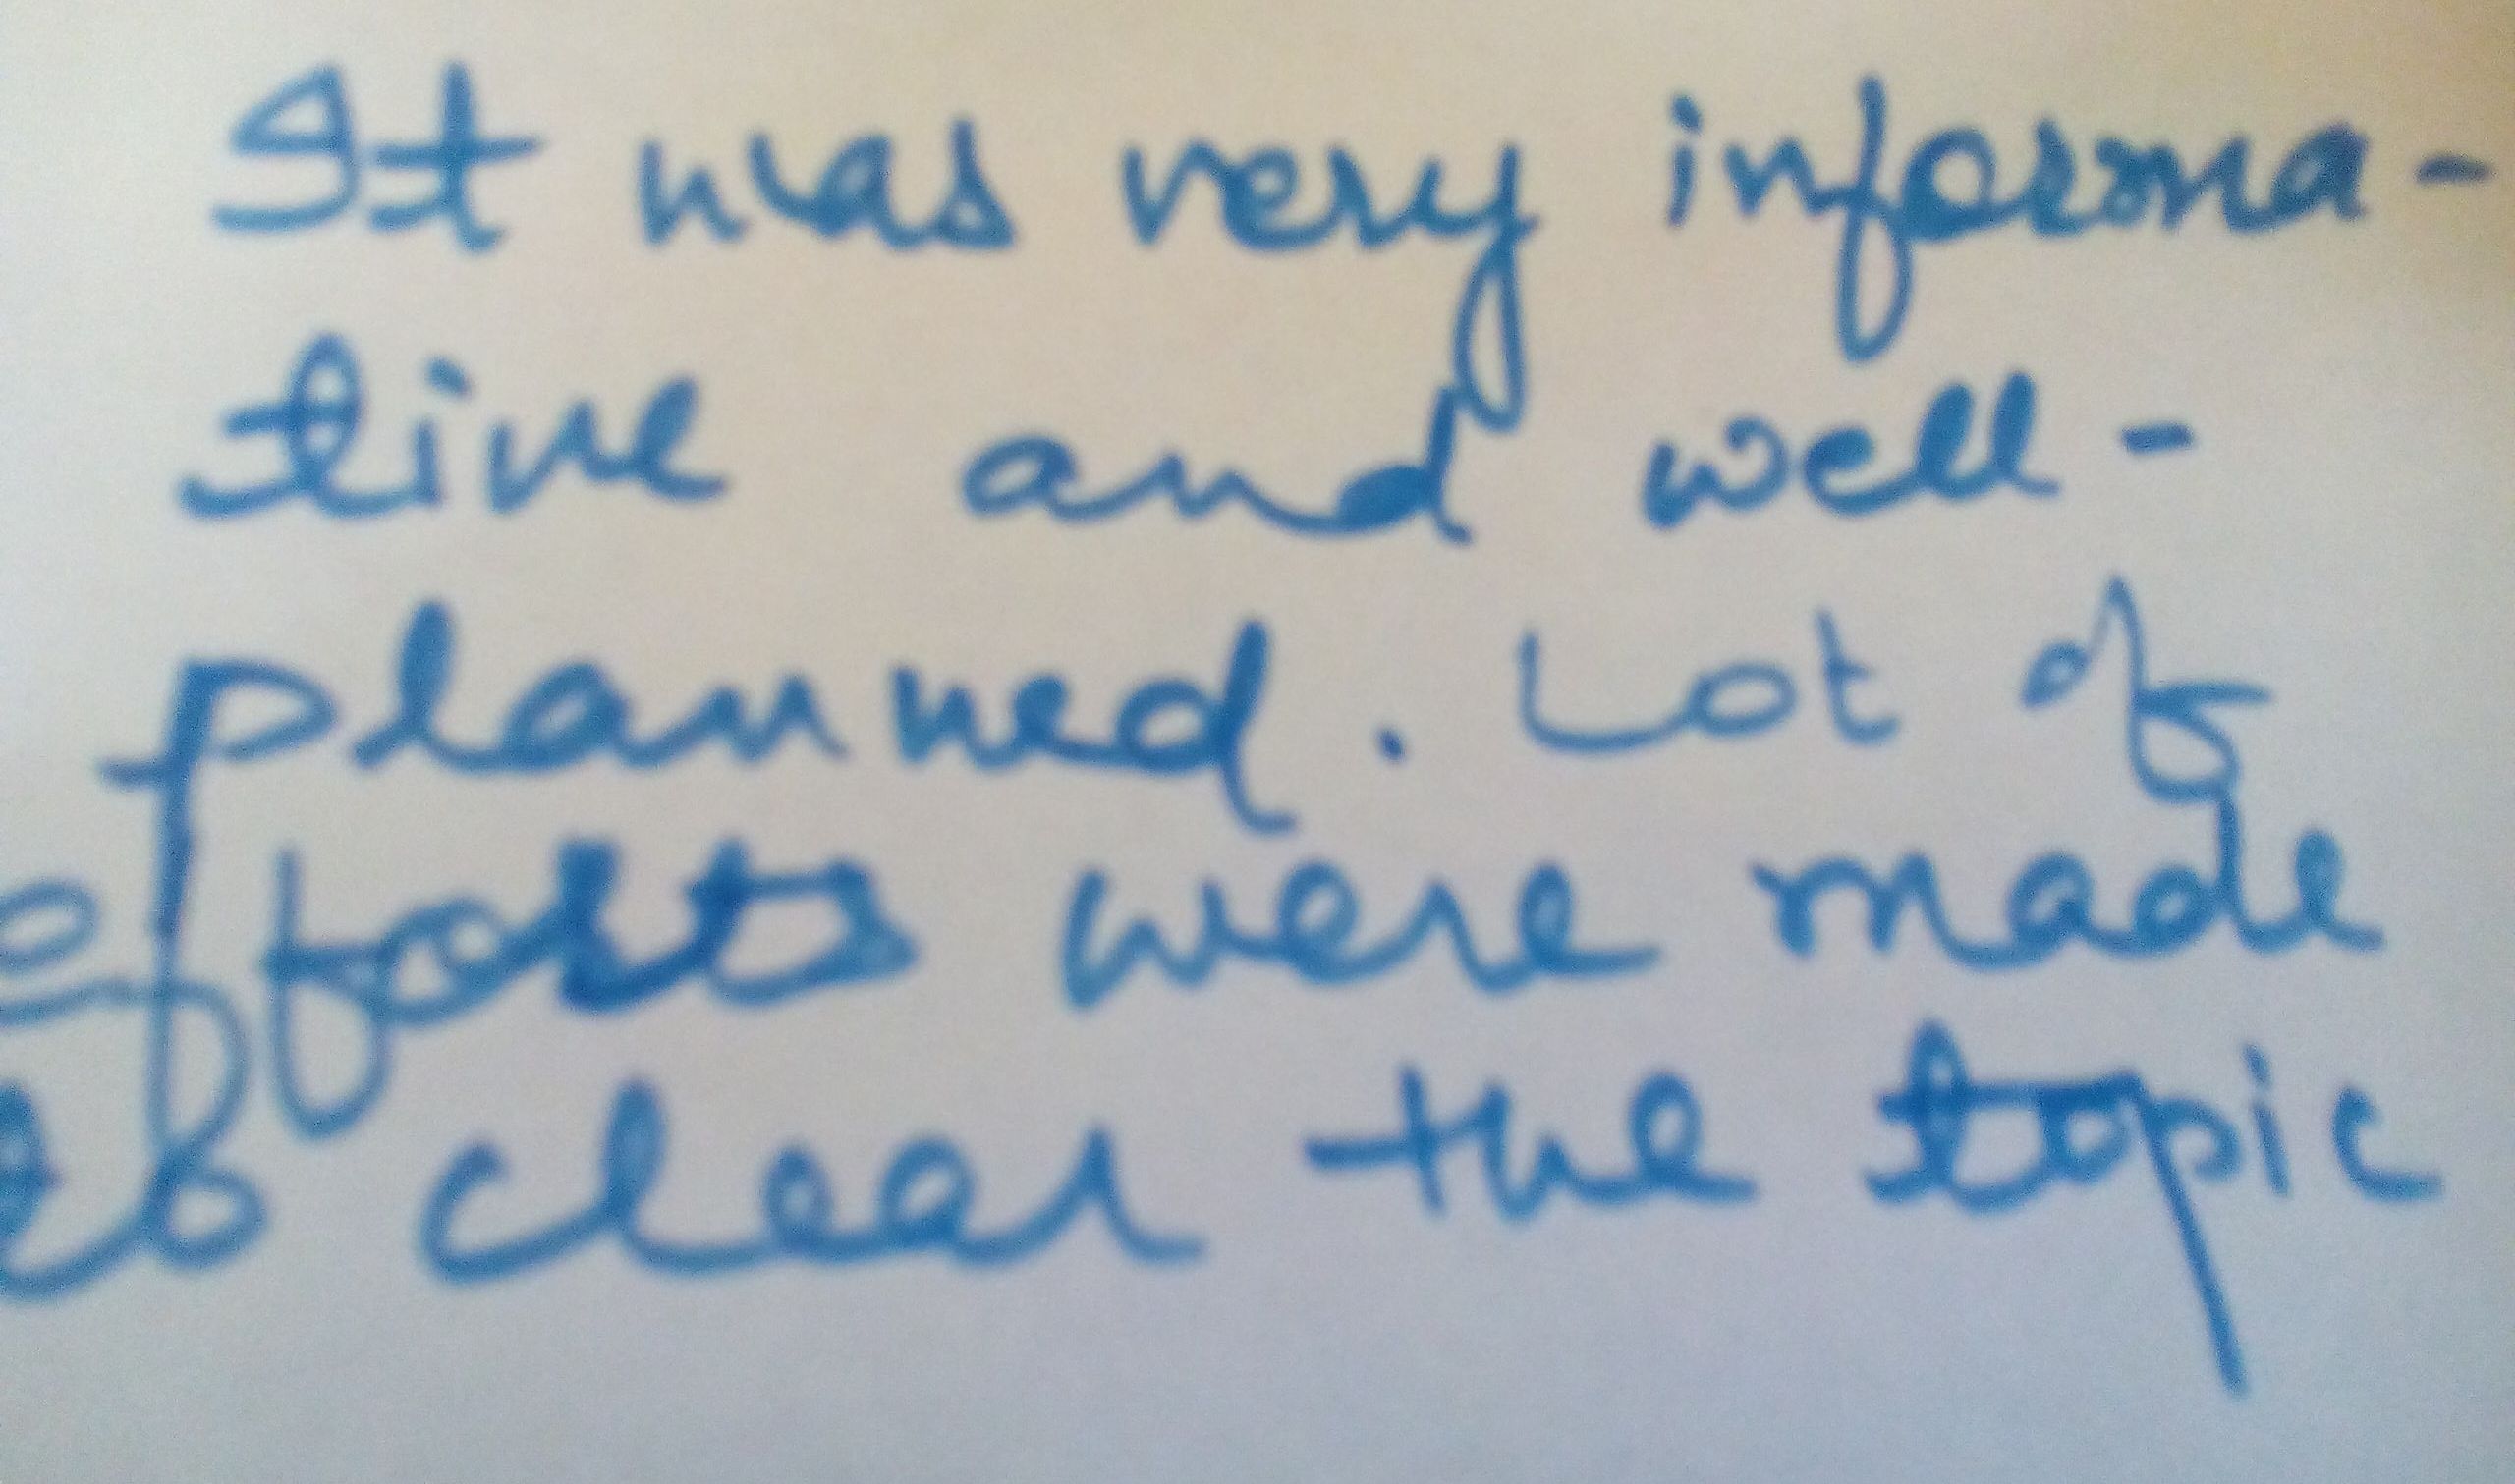 It was very informa-
tive and well-
planned. Lot of
efforts were made
to clear the topic